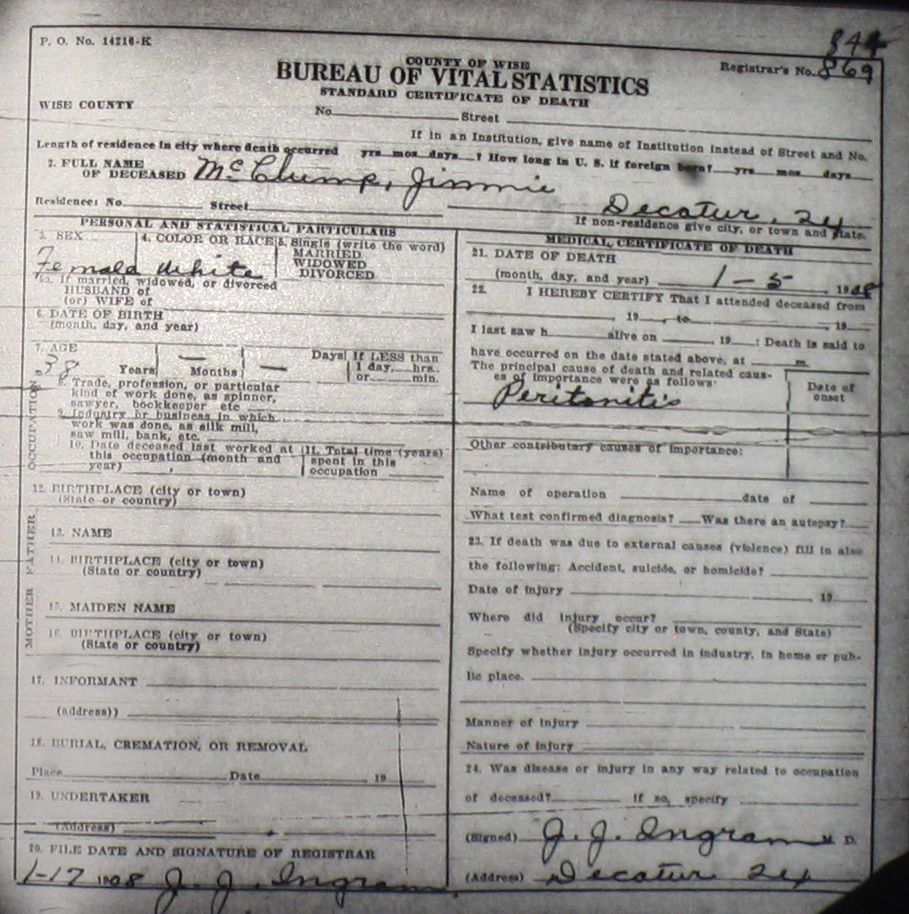 P. O. No. 14216-K
844
COUNTY OF WISE
BUREAU OF VITAL STATISTICS
STANDARD CERTIFICATE OF DEATH
Registrar's No. 869
WISE COUNTY
No Street
If in an Institution, give name of Institution instead of Street and No.
Length of residence in city where death occurred yrs mos days ? How long in U. S. if foreign born? yrs mos days
2. FULL NAME
OF DECEASED McClump, Jimmie
Residence: No Street Decatur, Tex
If non-residence give city, or town and state.
PERSONAL AND STATISTICAL PARTICULARS
3. SEX 4. COLOR OR RACE 5. Single (write the word)
MARRIED
WIDOWED
DIVORCED
Female White
5a. If married, widowed, or divorced
HUSBAND of
(or) WIFE of
6. DATE OF BIRTH
(month, day, and year)
7. AGE
38 Years — Months — Days If LESS than
1 day, hrs.
or min.
OCCUPATION
8. Trade, profession, or particular
kind of work done, as spinner,
sawyer, bookkeeper etc
9. Industry or business in which
work was done, as silk mill,
saw mill, bank, etc.
10. Date deceased last worked at
this occupation (month and
year)
11. Total time (years)
spent in this
occupation
12. BIRTHPLACE (city or town)
(State or country)
FATHER
13. NAME
14. BIRTHPLACE (city or town)
(State or country)
MOTHER
15. MAIDEN NAME
16. BIRTHPLACE (city or town)
(State or country)
17. INFORMANT
(address))
18. BURIAL, CREMATION, OR REMOVAL
Place Date 19
19. UNDERTAKER
(Address)
20. FILE DATE AND SIGNATURE OF REGISTRAR
1-17 1908 J. J. Ingram
MEDICAL CERTIFICATE OF DEATH
21. DATE OF DEATH
(month, day, and year) 1-5 1908
22. I HEREBY CERTIFY That I attended deceased from
19 to 19
I last saw h alive on 19 : Death is said to
have occurred on the date stated above, at m.
The principal cause of death and related caus-
es of importance were as follows:
Date of
onset
Peritonitis
Other contributary causes of importance:
Name of operation date of
What test confirmed diagnosis? Was there an autopsy?
23. If death was due to external causes (violence) fill in also
the following: Accident, suicide, or homicide?
Date of injury 19
Where did injury occur?
(Specify city or town, county, and State)
Specify whether injury occurred in industry, in home or pub-
lic place.
Manner of injury
Nature of injury
24. Was disease or injury in any way related to occupation
of deceased? If so, specify
(Signed) J. J. Ingram M. D.
(Address) Decatur Tex